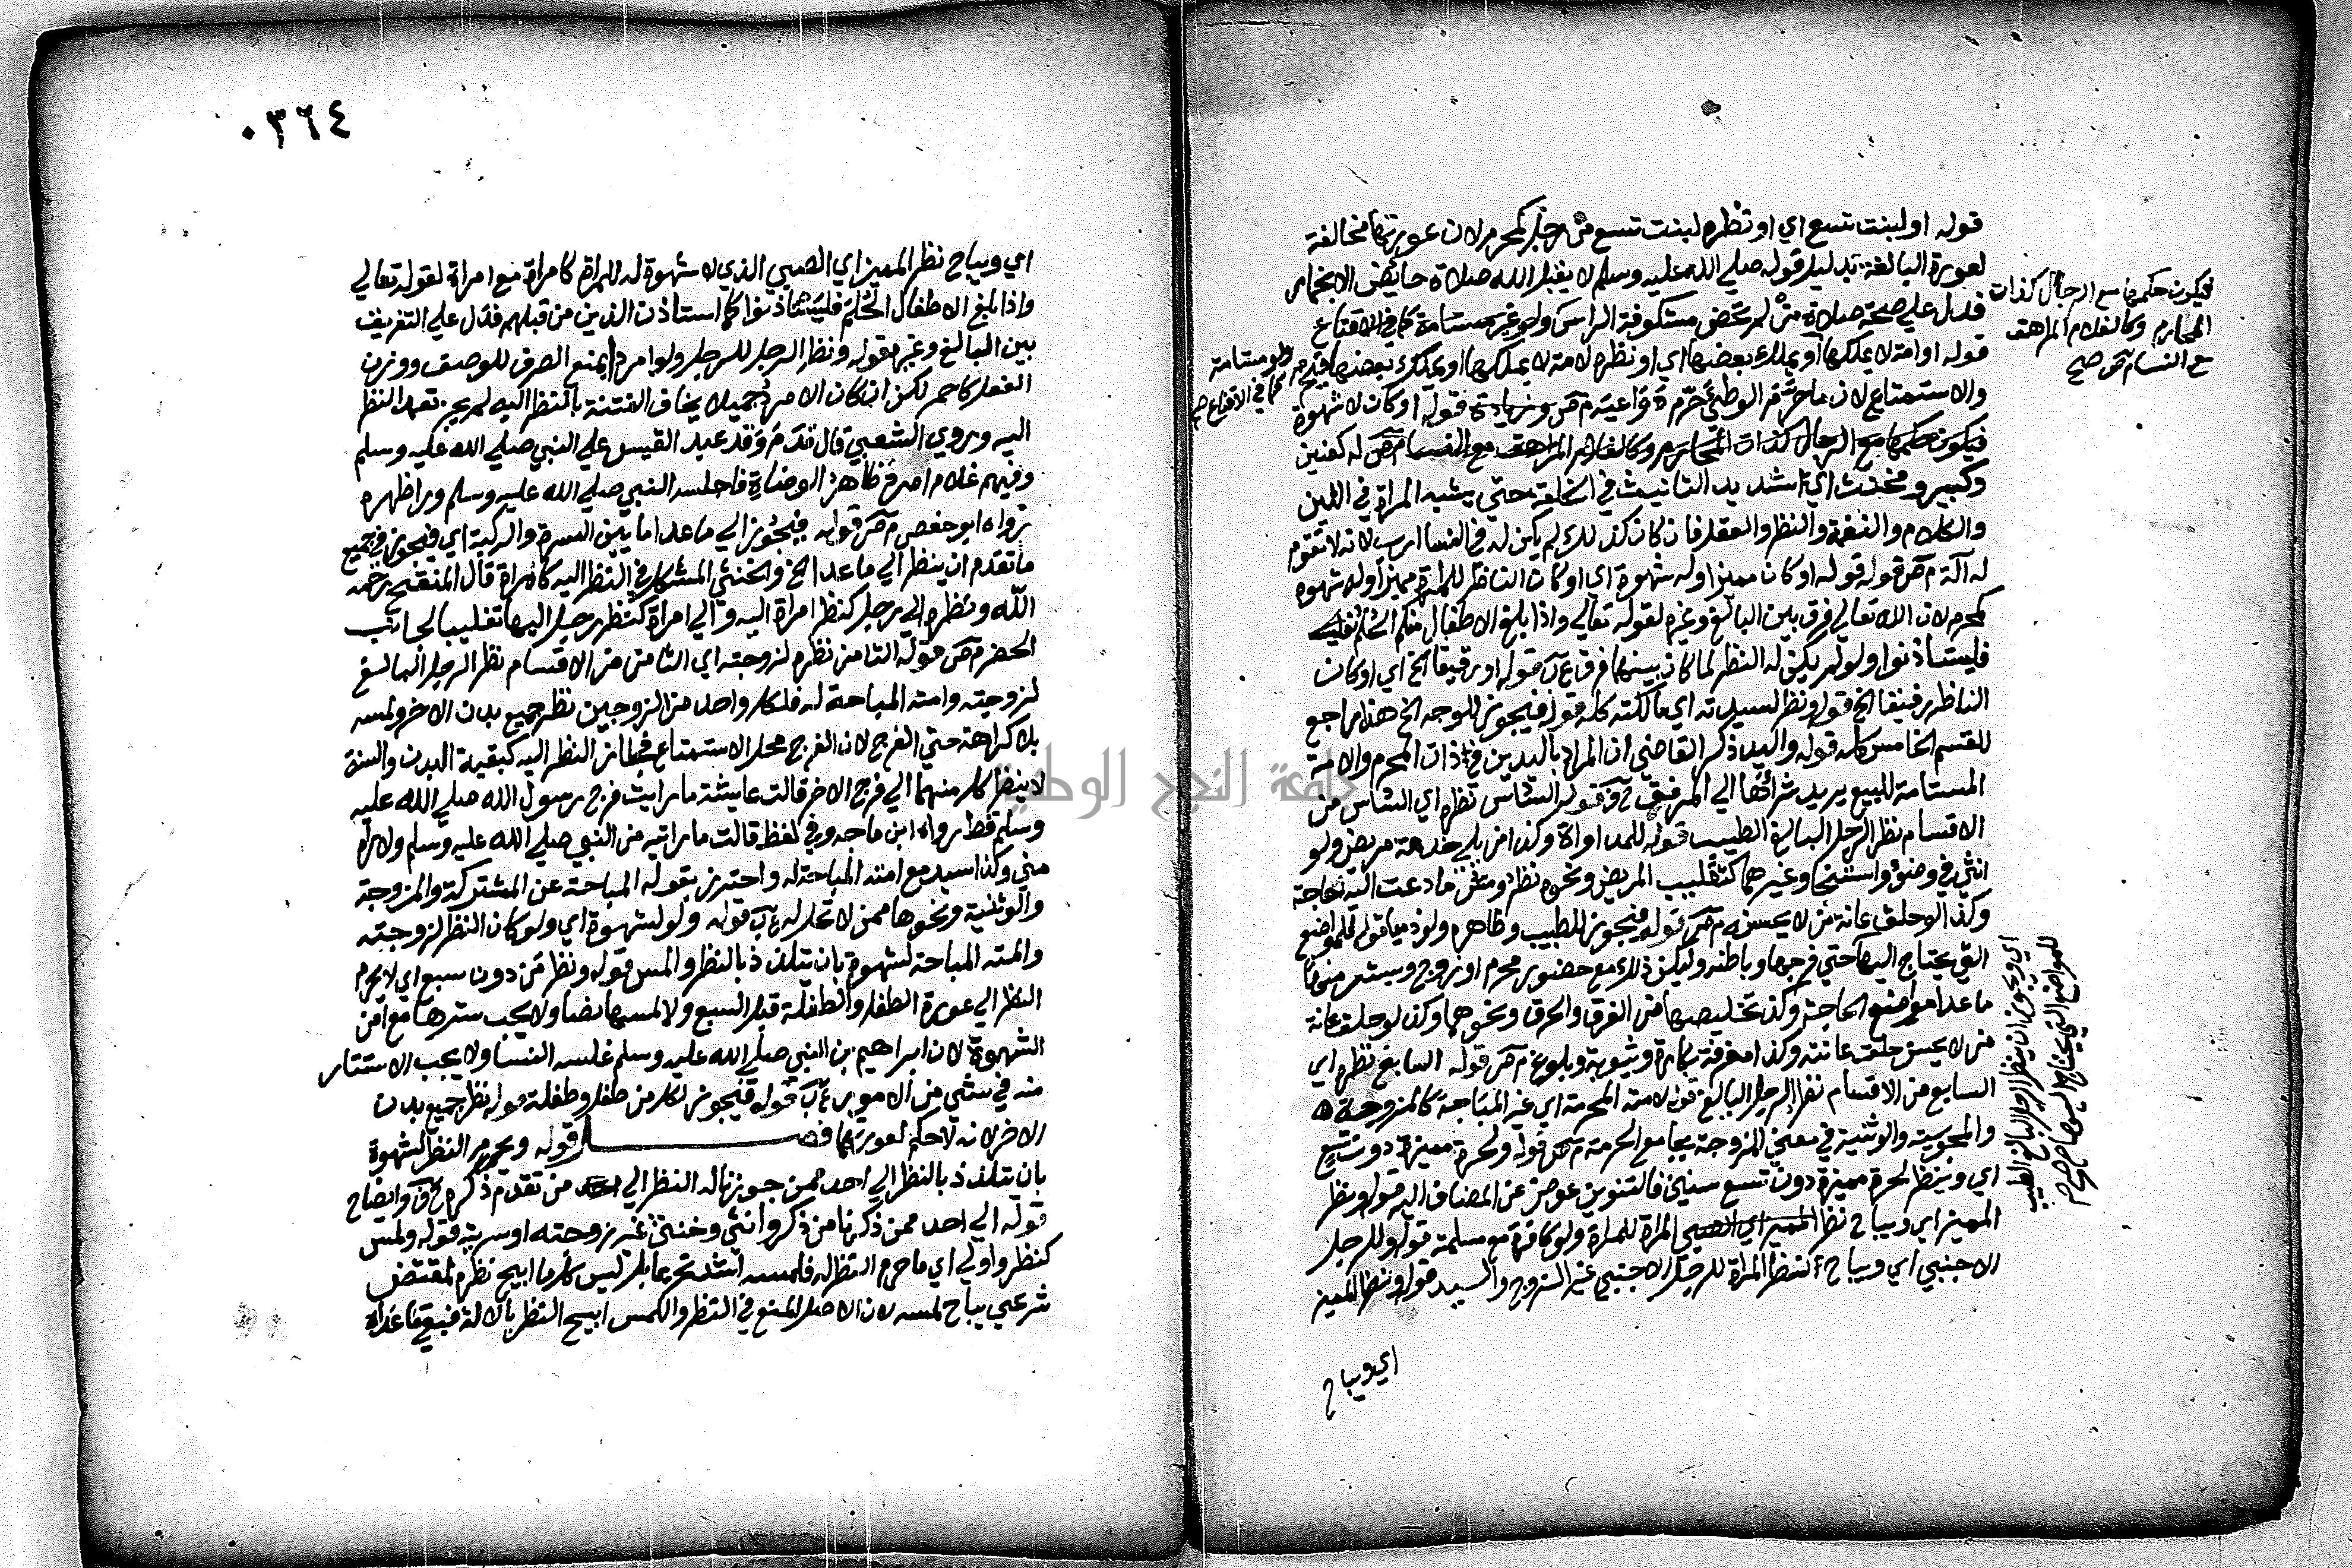 قوله او لبنت تسع اي او نظره لبنت تسع من رجل كمحرم لان عورتها مخالفة
لعورة البالغة بدليل قوله صلي الله عليه وسلم لا يقبل الله صلاة حائض الا بخمار
فدل علي صحة صلاة من لم تحض مكشوفة الراس ولو غير مستامة كما في الاقناع
قوله او امة لا يملكها او يملك بعضها اي او نظره لامة لا يملكها او يملك بعضها
والاستمتاع لان ما حرم الوطئ حرم دواعيه م ص قوله او كان لا شهوة
فيكون حكمها مع الرجال كذات المحارم وكالغلام المراهق مع النسا م ص له كعنين
وكبير ومخنث اي شديد التانيث في الخلقة حتي يشبه المراة في اللين
والكلام والنغمة والنظر والعقل فان كان كذلك لم يكن له في النسا ارب لانه لا تقوم
له آلة م ص قوله او كان مميزا وله شهوة اي او كان الناظر للمراة مميزا وله شهوة
كمحرم لان الله تعالي فرق بين البالغ وغيره لقوله تعالي واذا بلغ الاطفال منكم الحلم
فليستاذنوا ولو لم يكن له النظر لما كان بينهما فرق ع ب قوله او رقيقا الخ اي او كان
الناظر رقيقا الخ قوله ونظر لسيدته اي مالكته كله قوله فيجوز للوجه الخ هذا راجع
للقسم الخامس كله قوله واليد ذكر القاضي ان المراد باليدين في ذات المحرم والامة
المستامة للبيع يريد شرائها الي المرفق قوله السادس نظره اي السادس من
الاقسام نظر الرجل البالغ الطبيب قوله للمداواة وكذا من يلي خدمة مريض ولو
انثي في وضوء واستنجا وغيرهما كتقليب المريض ونحوه نظر ومس ما دعت اليه الحاجة
وكذا لو حلق عانة من لا يحسنه م ص قوله فيجوز للطبيب وظاهره ولو ذميا قوله للمواضع
التي يحتاج اليها حتي فرجها وباطنه وليكن ذلك مع حضور محرم او زوج ويستر منها
ما عدا مواضع الحاجة وكذا تخليصها من الغرق والحرق ونحوهما وكذا لو حلق عانة
من لا يحسن حلق عانته وكذا معرفة بكارة وثيوبة وبلوغ م ص قوله السابع نظره اي
السابع من الاقسام نظر الرجل البالغ قوله لامته المحرمة اي غير المباحة كالمزوجة
والمجوسية والوثنية في معني المزوجة بجامع الحرمة م ص قوله ولحرة مميزة دون تسع
اي وينظر لحرة مميزة دون تسع سنين فالتنوين عوض عن المضاف اليه قوله ونظر
المميز اي ويباح نظر المميز اي الصبي المراة للمراة ولو كافرة مع مسلمة قوله وللرجل
الاجنبي اي ويباح نظر المراة للرجل الاجنبي غير الزوج والسيد قوله ونظر المميز
اي ويباح
فيكون حكمها مع الرجال كذات
المحارم وكالغلام المراهق
مع النسا م ص صح
ولو مستامة
كما في الاقناع صح
اي ويجوز ان ينظر الرجل البالغ الطبيب
للمواضع التي يحتاج اليها م ص
٠٣٦٤
اي ويباح نظر المميز اي الصبي الذي لا شهوة له للمراة كامراة مع امراة لقوله تعالي
واذا بلغ الاطفال الحلم فليستاذنوا كما استاذن الذين من قبلهم فدل علي التفريق
بين البالغ وغيره قوله ونظر الرجل للرجل ولو امرد يمنع الصرف للوصف ووزن
الفعل كاحمر لكن ان كان الامرد جميلا يخاف الفتنة بالنظر اليه لم يجز تعمد النظر
اليه وروي الشعبي قال قدم وفد عبد القيس علي النبي صلي الله عليه وسلم
وفيهم غلام امرد ظاهر الوضاءة فاجلسه النبي صلي الله عليه وسلم ورا ظهره
رواه ابو حفص م ص قوله فيجوز الي ما عدا ما بين السرة والركبة اي فيجوز في جميع
ما تقدم ان ينظر الي ما عدا الخ والخنثي المشكل في النظر اليه كامراة قال المنقح رحمه
الله ونظره الي رجل كنظر امراة اليه والي امراة كنظر رجل اليها تغليبا لجانب
الحضر م ص قوله الثامن نظره لزوجته اي الثامن من الاقسام نظر الرجل البالغ
لزوجته وامته المباحة له فلكل واحد من الزوجين نظر جميع بدن الاخر ولمسه
بلا كراهة حتي الفرج لان الفرج محل الاستمتاع فجاز النظر اليه كبقية البدن والسنة
لا ينظر كل منهما الي فرج الاخر قالت عايشة ما رايت فرج رسول الله صلي الله عليه
وسلم قط رواه ابن ماجه وفي لفظ قالت ما رايته من النبي صلي الله عليه وسلم ولا راه
مني وكذا سيد مع امته المباحة له واحترز بقوله المباحة عن المشتركة والمزوجة
والوثنية ونحوها ممن لا تحل له ع ب قوله ولو لشهوة اي ولو كان النظر لزوجته
وامته المباحة لشهوة بان يتلذذ بالنظر والمس قوله ونظر من دون سبع اي لا يحرم
النظر الي عورة الطفل والطفلة قبل السبع ولا لمسها نصا ولا يجب سترها مع امن
الشهوة لان ابراهيم بن النبي صلي الله عليه وسلم غسله النسا ولا يجب الاستتار
منه في شئ من الامور ع ب قوله فيجوز لكل من طفل وطفلة قوله نظر جميع بدن
الاخر لانه لا حكم لعورتهما فصل قوله ويحرم النظر لشهوة
بان يتلذذ بالنظر الي احد ممن جوزنا له النظر الي من تقدم ذكره وايضاح
قوله الي احد ممن ذكرنا من ذكر وانثي وخنثي غير زوجته او سريته قوله ولمس
كنظر واولي اي ما حرم النظر له فلمسه اشد تحريما بل ليس كلما ابيح نظره لمقتض
شرعي يباح لمسه لان الاصل المنع في النظر واللمس ابيح النظر بالالة فبقي ما عداه